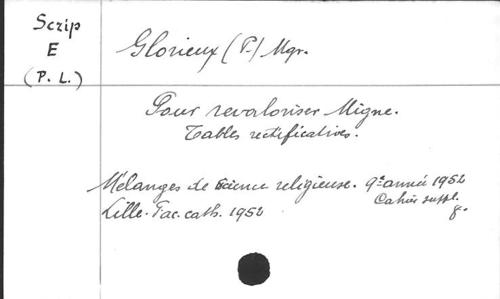 Scrip
E
(P. L.)
Glorieux (P.) Mgr.
Pour revaloriser Migne.
Tables rectificatives.
Mélanges de Science religieuse. 9e année 1952
Cahier suppl.
Lille. Fac. cath. 1952